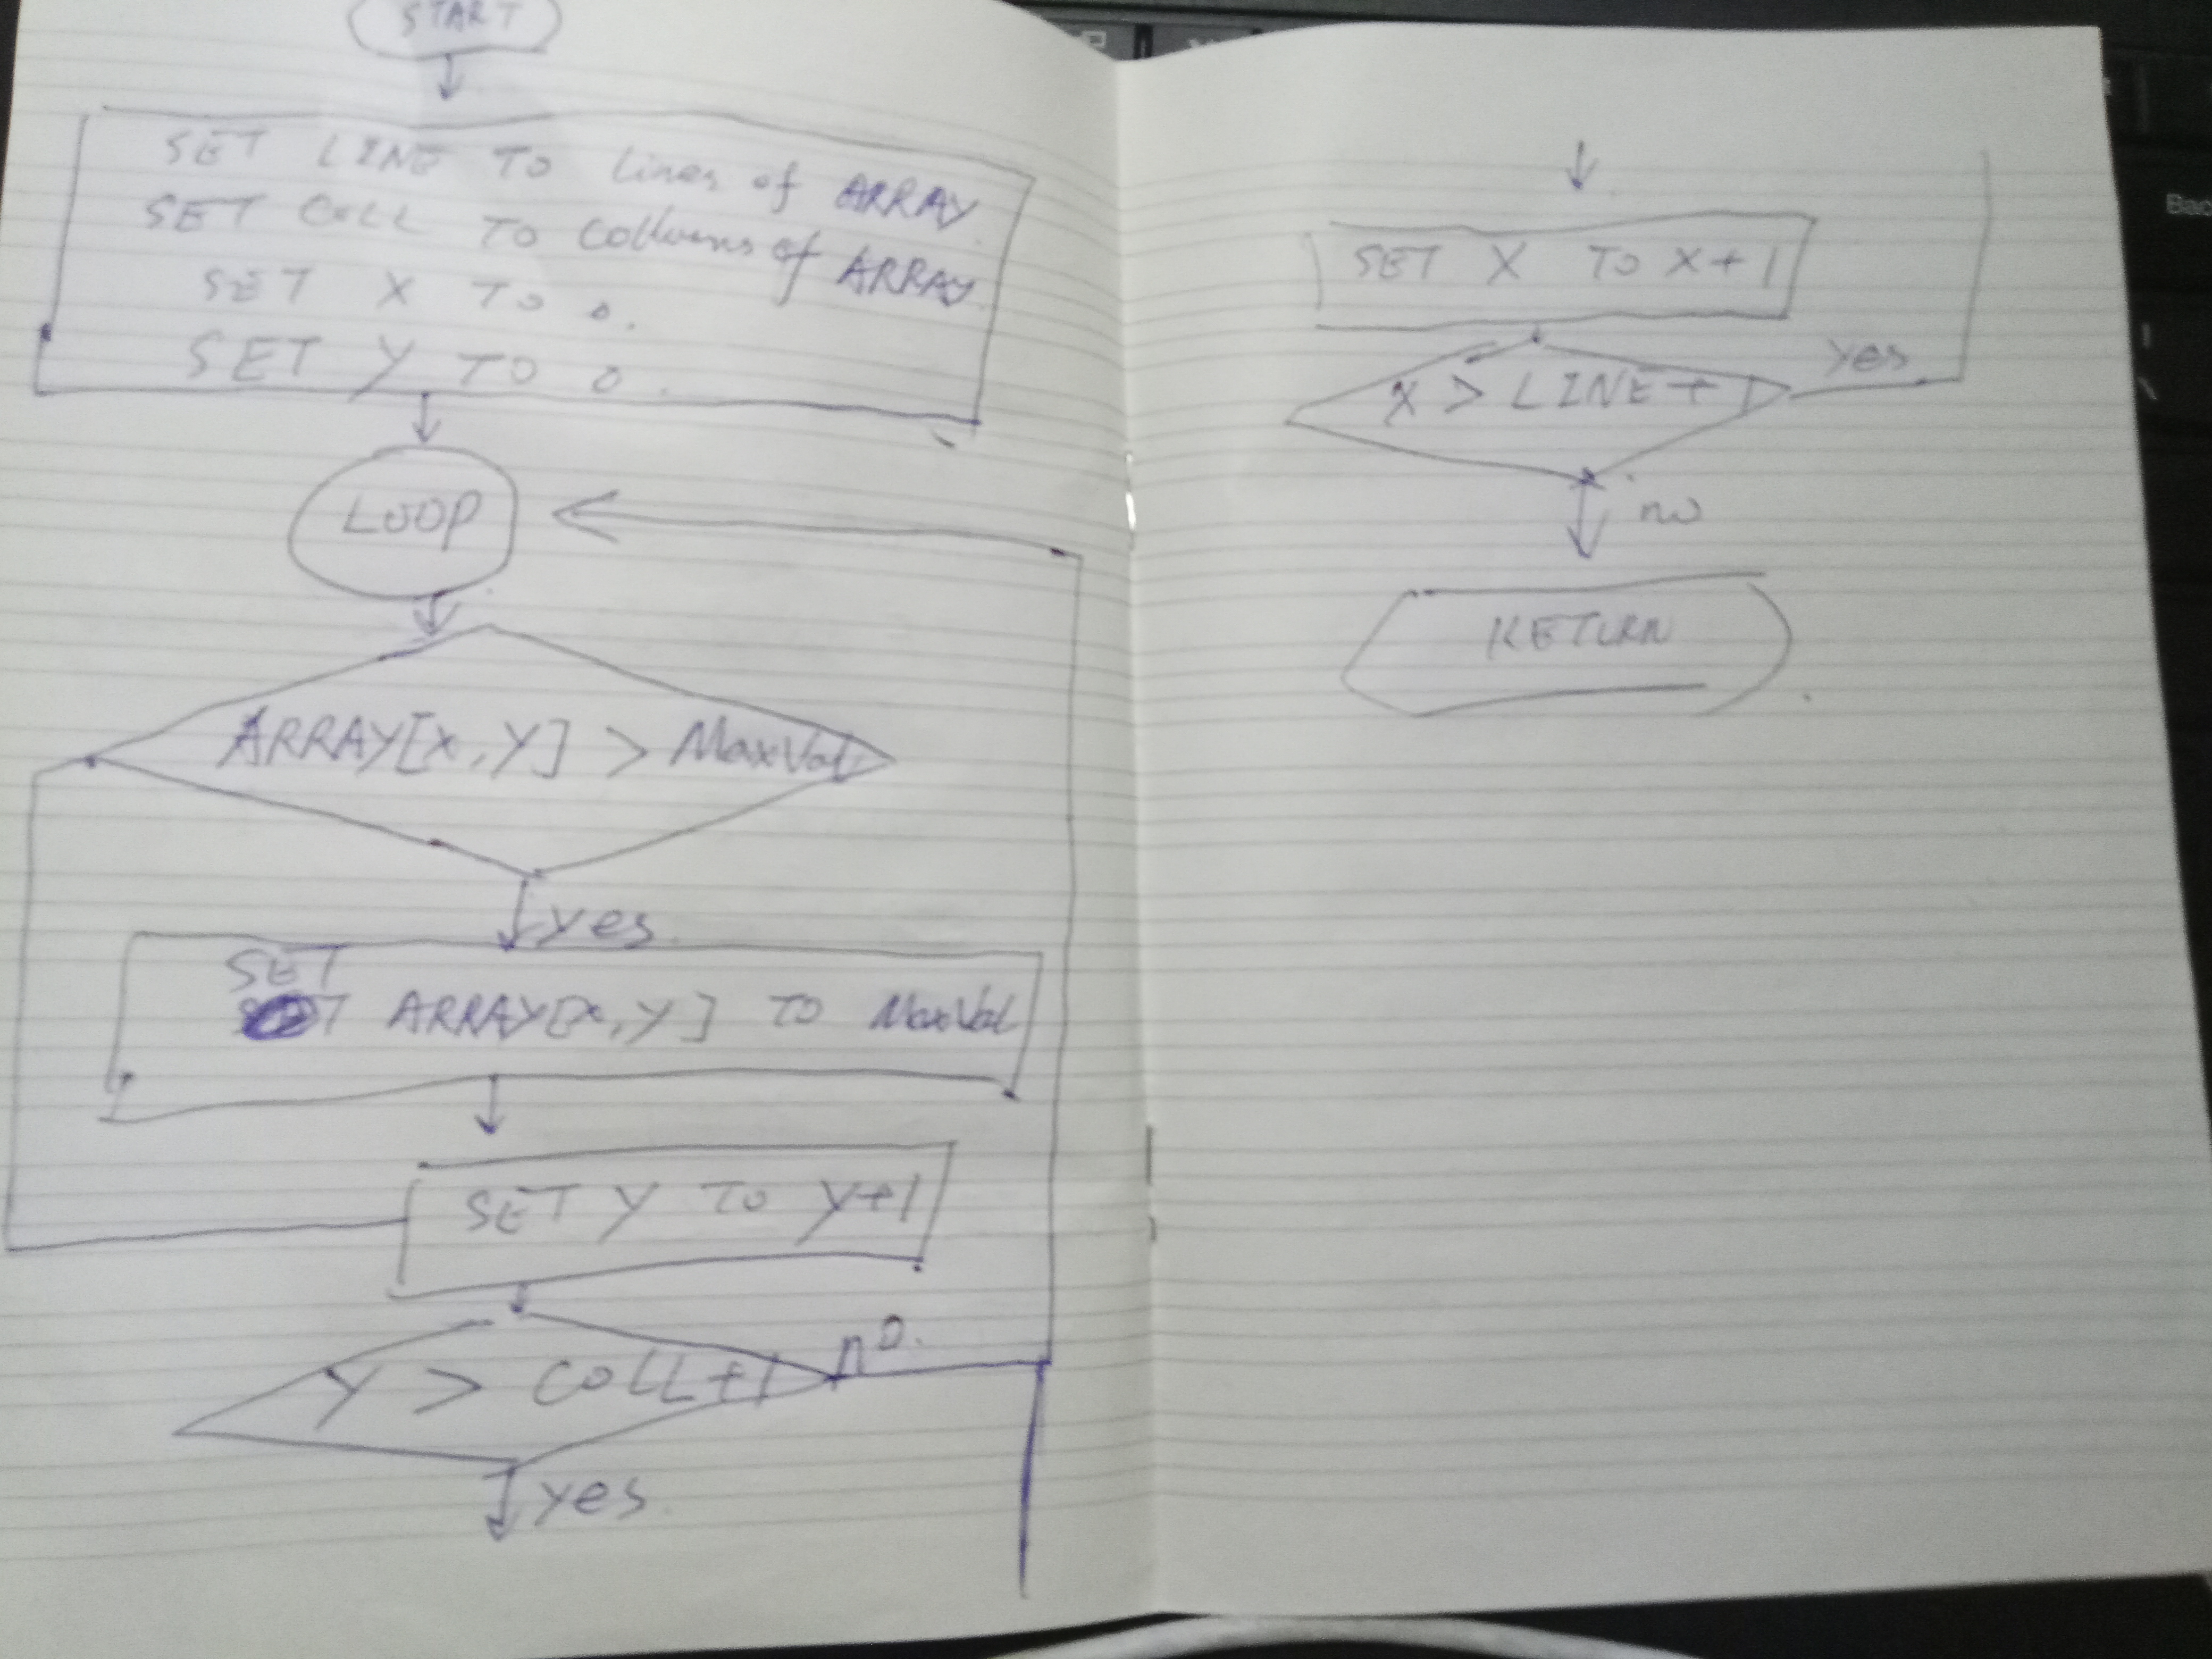 START
SET LINE TO Lines of ARRAY
SET COLL TO Collumns of ARRAY
SET X TO 0.
SET Y TO 0.
LOOP
ARRAY[X,Y] > MaxVal
yes
SET
ARRAY[X,Y] TO MaxVal
SET Y TO Y+1
Y > COLL+1
no.
yes
SET X TO X+1
X > LINE+1
yes
no
RETURN
Bac